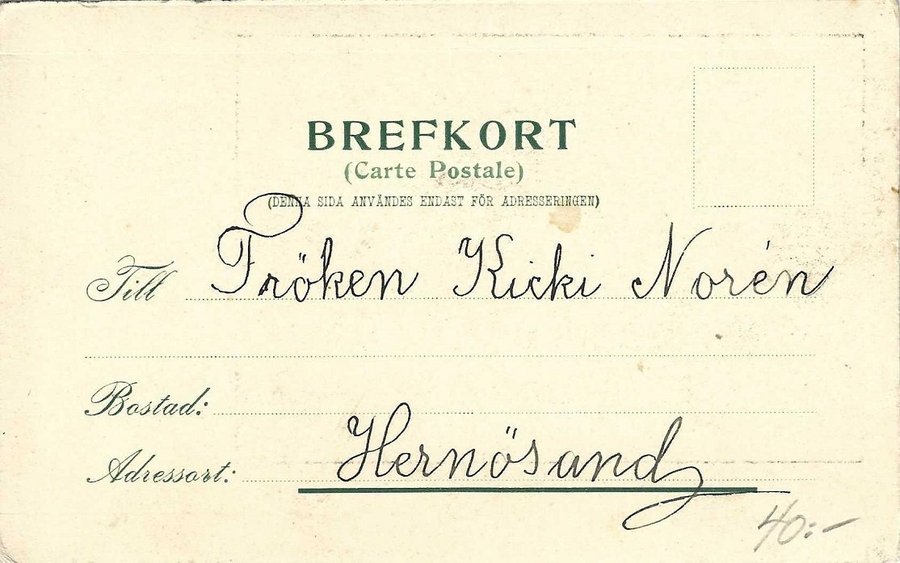 BREFKORT
(Carte Postale)
(DENNA SIDA ANVÄNDES ENDAST FÖR ADRESSERINGEN)
Till Fröken Kicki Norén
Bostad:
Adressort: Hernösand
40:-